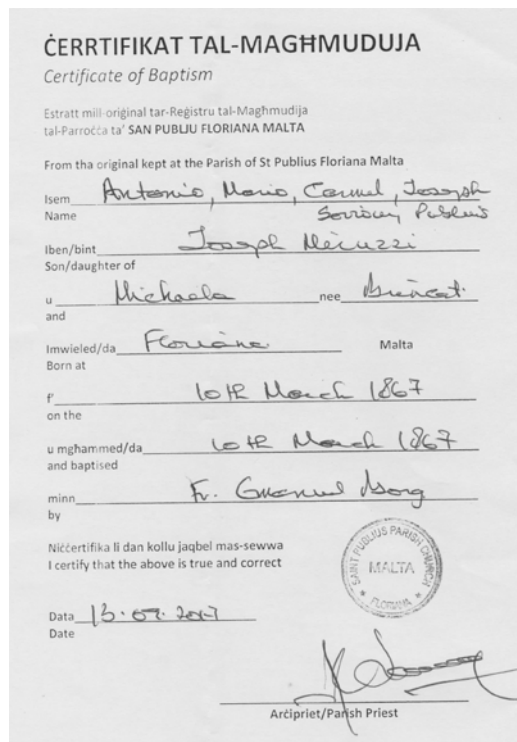 ĊERRTIFIKAT TAL-MAGĦMUDUJA
Certificate of Baptism
Estratt mill-oriġinal tar-Reġistru tal-Magħmudija
tal-Parroċċa ta' SAN PUBLIJU FLORIANA MALTA
From tha original kept at the Parish of St Publius Floriana Malta
Isem Antonio, Mario, Carmel, Joseph
Name Publius
Iben/bint Joseph
Son/daughter of
u Michaela nee Brincat
and
Imwieled/da Floriana Malta
Born at
f' 10th March 1867
on the
u mgħammed/da 10th March 1867
and baptised
minn Fr. Emanuel Borg
by
Niċċertifika li dan kollu jaqbel mas-sewwa
I certify that the above is true and correct
SAINT PUBLIUS PARISH CHURCH
MALTA
FLORIANA
Data
Date
Arċipriet/Parish Priest